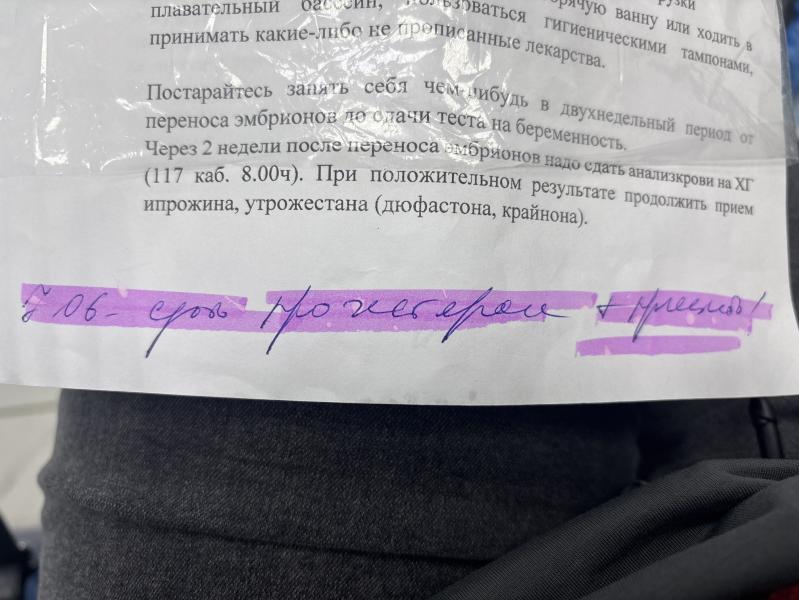 рузки
плавательный бассейн, пользоваться горячую ванну или ходить в
принимать какие-либо не прописанные лекарства. гигиеническими тампонами,
Постарайтесь занять себя чем-нибудь в двухнедельный период от
переноса эмбрионов до сдачи теста на беременность.
Через 2 недели после переноса эмбрионов надо сдать анализкрови на ХГ
(117 каб. 8.00ч). При положительном результате продолжить прием
ипрожина, утрожестана (дюфастона, крайнона).
7.06 - кровь прогестерон +